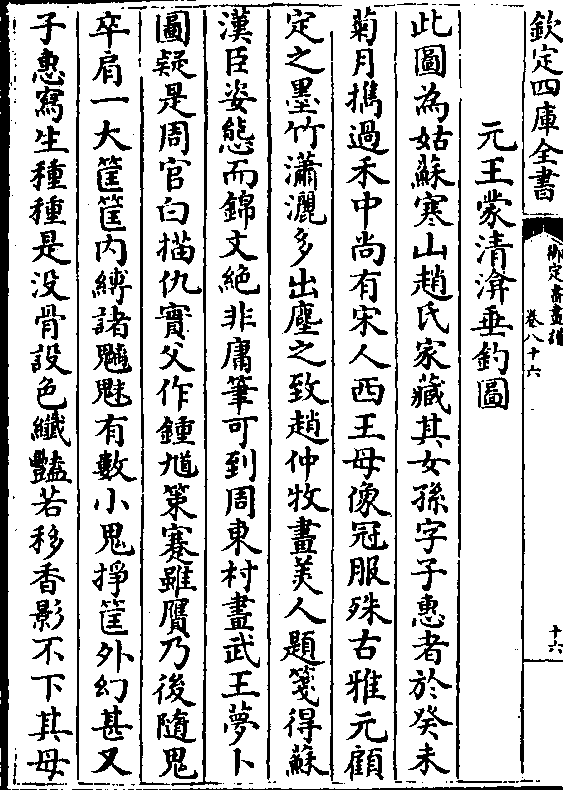 欽定四庫全書
御定書畫譜
卷八十六
十六
元王蒙清濟垂釣圖
此圖為姑蘇寒山趙氏家藏其女孫字子惠者於癸未
菊月攜過禾中尚有宋人西王母像冠服殊古雅元顧
定之墨竹瀟灑多出塵之致趙仲牧畫美人題箋得蘇
漢臣姿態而錦文絶非庸筆可到周東村畫武王夢卜
圖疑是周官白描仇實父作鍾馗策蹇雖贋乃後隨鬼
卒肩一大筐筐内縛諸魑魅有數小鬼掙筐外幻甚又
子惠寫生種種是没骨設色纖豔若移香影不下其母